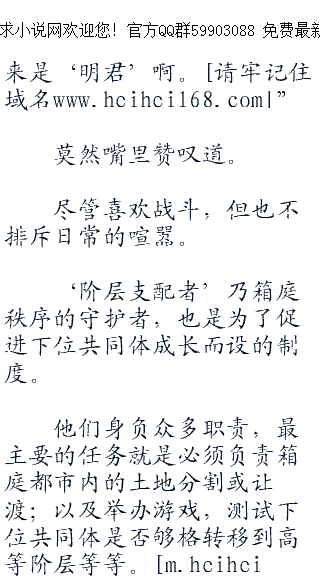 求小说网欢迎您! 官方QQ群59903088 免费最新
来是‘明君’啊。[请牢记住
域名www.hcihci168.com|”
莫然嘴里赞叹道。
尽管喜欢战斗，但也不
排斥日常的喧嚣。
‘阶层支配者’乃箱庭
秩序的守护者，也是为了促
进下位共同体成长而设的制
度。
他们身负众多职责，最
主要的任务就是必须负责箱
庭都市内的土地分割或让
渡；以及举办游戏，测试下
位共同体是否够格转移到高
等阶层等等。[m.hcihci